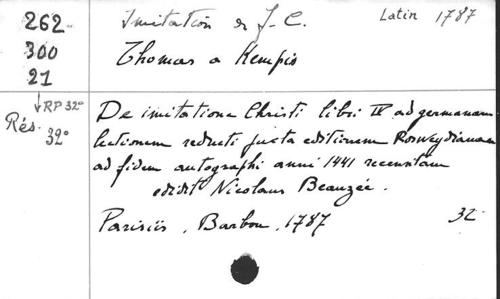 262
300
21
↓ RP 32°
Rés. 32°
Imitation de J.-C. Latin 1787
Thomas a Kempis
De imitatione Christi libri IV ad germanam
lectionem reducti juxta editionem Rosweydianam
ad fidem autographi anni 1441 recensitam
edidit Nicolaus Beauzée.
Parisiis, Barbou, 1787 32°